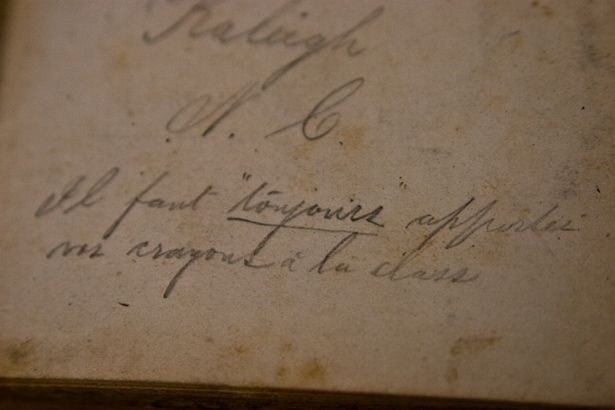 Raleigh
N. C
Il faut "toujours" apporter
vos crayons à la class